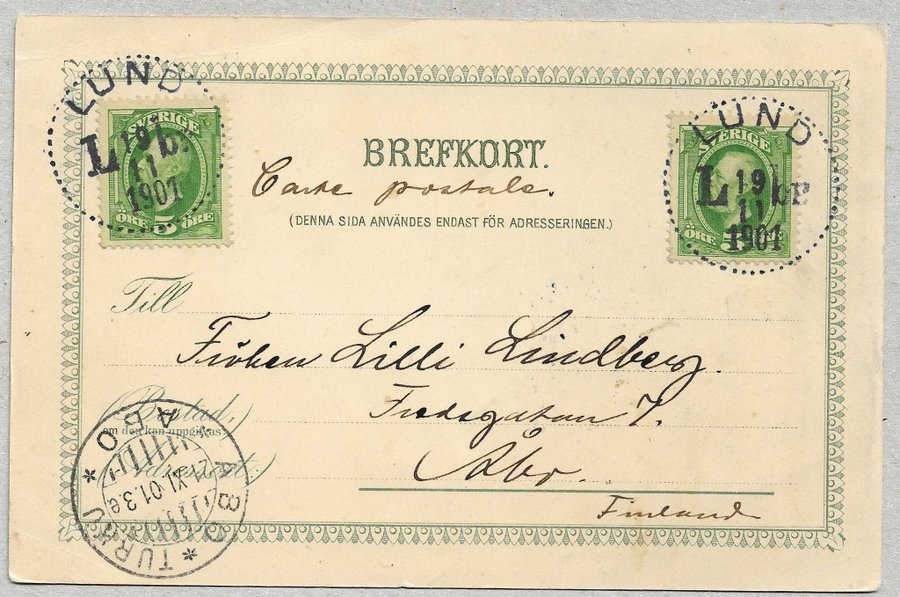 LUND
L 19 L.Br
11
1901
SVERIGE
ÖRE 5 ÖRE
LUND
L 19 LBR
11
1901
SVERIGE
ÖRE 5 ÖRE
BREFKORT.
Carte postale.
(DENNA SIDA ANVÄNDES ENDAST FÖR ADRESSERINGEN.)
Till
Fröken Lilli Lindberg.
(Bostad,
om den kan uppgifvas
Adressort:)
7.
Åbo.
Finland
ABO
21.XI.01.3 e
* TURKU * ABO